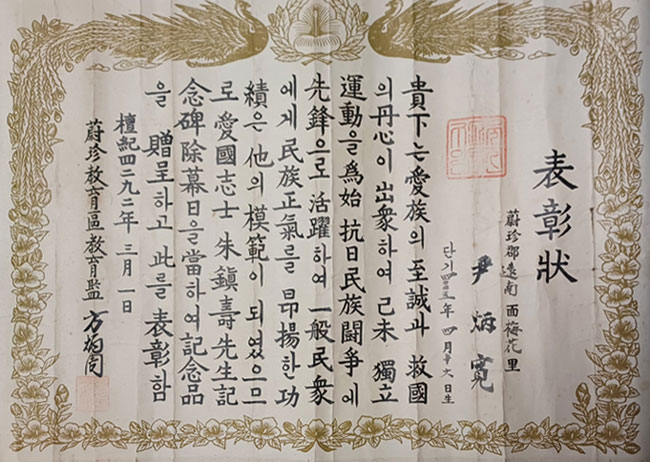 表彰狀
蔚珍郡遠南面梅花里
尹炳寬
年 四月 日生
貴下는 愛族의 至誠과 救國
의 丹心이 出衆하여 己未 獨立
運動을 爲始 抗日民族鬪爭에
先鋒으로 活躍하여 一般民衆
에게 民族正氣를 昂揚한 功
績은 他의 模範이 되였으므
로 愛國志士 朱鎭壽先生記
念碑除幕日을 當하여 記念品
을 贈呈하고 此를 表彰함
檀紀四二九二年 三月 一日
蔚珍敎育區敎育監